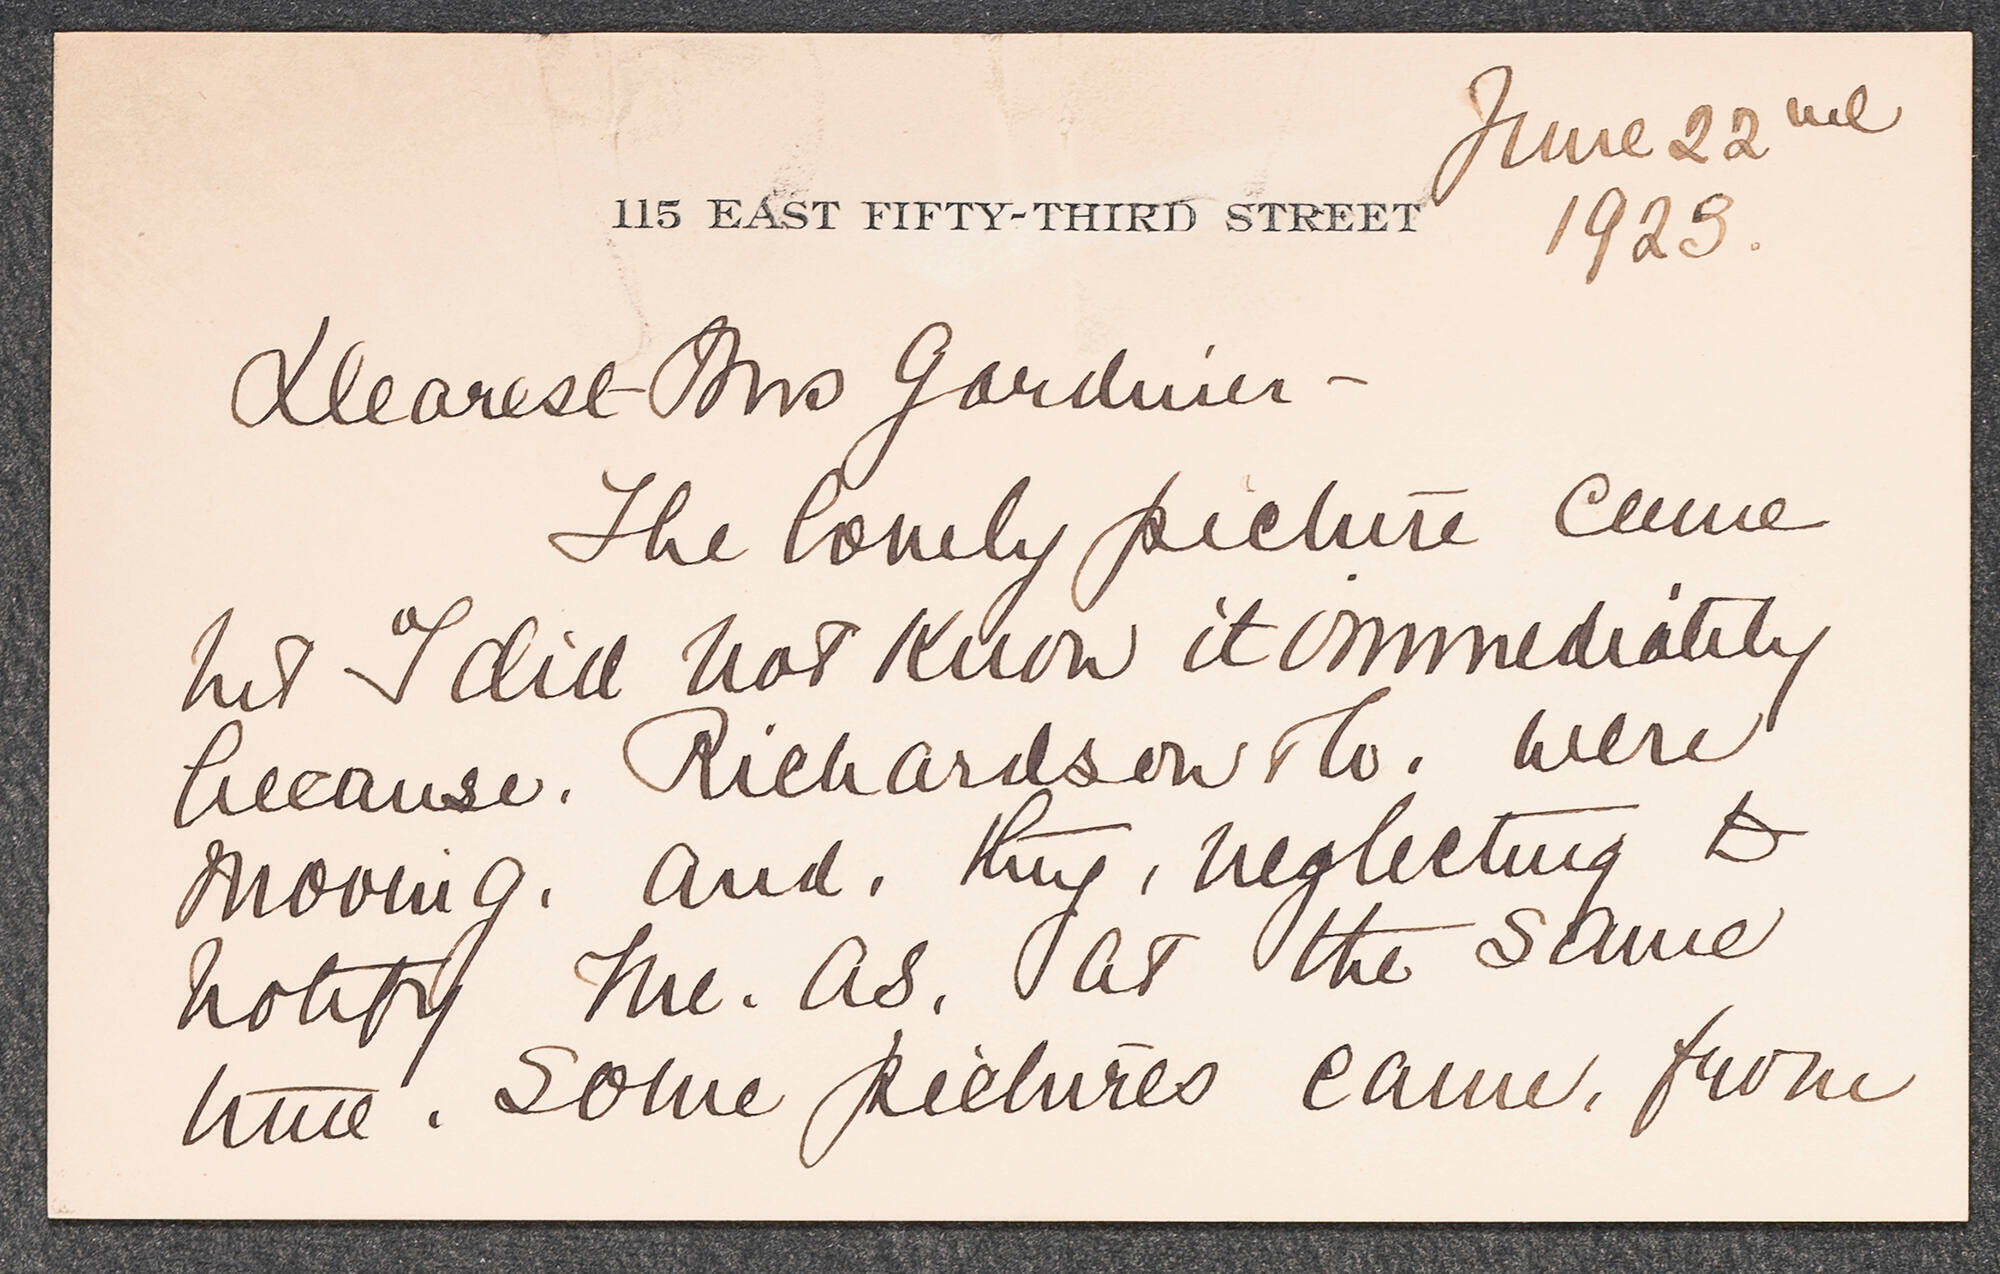 June 22nd
1923.
115 EAST FIFTY-THIRD STREET
Dearest Mrs Gardiner -
The lovely picture came
but I did not know it immediately
because. Richardson & Co. were
moving. and. they, neglecting to
notify me. as, at the same
time. some pictures came. from